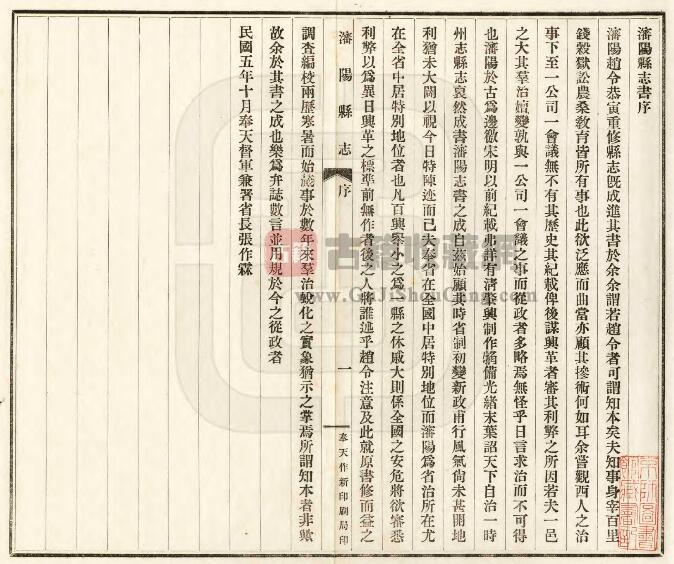 瀋陽縣志書序
瀋陽趙令恭寅重修縣志旣成進其書於余余謂若趙令者可謂知本矣夫知事身宰百里
錢穀獄訟農桑敎育皆所有事也此欲泛應而曲當亦顧其摻術何如耳余嘗觀西人之治
事下至一公司一會議無不有其歷史其紀載俾後謀興革者審其利弊之所因若夫一邑
之大其羣治嬗變孰與一公司一會議之事而從政者多略焉無怪乎日言求治而不可得
也瀋陽於古爲邊徼宋明以前紀載弗詳有清肇興制作犓備光緒末葉詔天下自治一時
州志縣志裒然成書瀋陽志書之成自茲始顧其時省制初變新政甫行風氣尙未甚開地
利猶未大闢以視今日特陳迹而已夫奉省在全國中居特別地位而瀋陽爲省治所在尤
在全省中居特別地位者也凡百興舉小之爲一縣之休戚大則係全國之安危將欲審悉
利弊以爲異日興革之標準前無作者後之人將誰述乎趙令注意及此就原書修而益之
瀋陽縣志 序 一 奉天作新印刷局印
調查編校兩歷寒暑而始蕆事於數年來羣治蛻化之實象猶示之掌焉所謂知本者非歟
故余於其書之成也樂爲弁誌數言並用規於今之從政者
民國五年十月奉天督軍兼署省長張作霖
古籍收藏網
www.GuJiShouCang.com